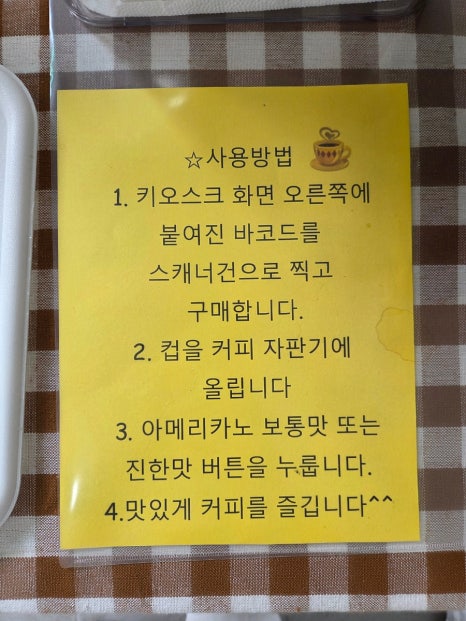 ☆사용방법
1. 키오스크 화면 오른쪽에
붙여진 바코드를
스캐너건으로 찍고
구매합니다.
2. 컵을 커피 자판기에
올립니다
3. 아메리카노 보통맛 또는
진한맛 버튼을 누룹니다.
4.맛있게 커피를 즐깁니다^^